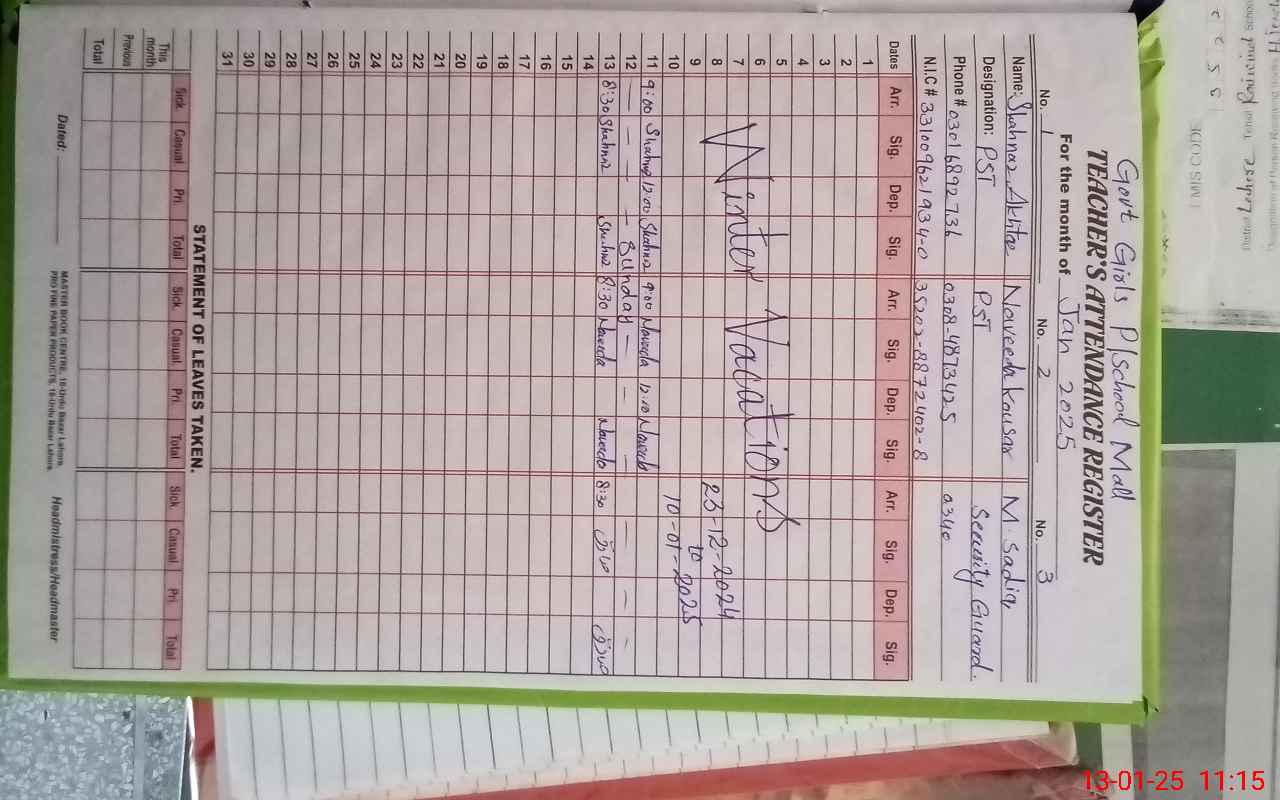 Govt Girls P/School Mall
TEACHER'S ATTENDANCE REGISTER
For the month of Jan 2025
No. 1 No. 2 No. 3
Name: Shahnaz Akhtar Naveeda Kousar M. Sadiq
Designation: PST PST Security Guard.
Phone # 03016892736 0308-4873425 0340
N.I.C # 3310096219340-0 35202-8872402-8
Dates Arr. Sig. Dep. Sig. Arr. Sig. Dep. Sig. Arr. Sig. Dep. Sig.
1
2
3
4
5
6
7
8
9
10
Winter Vacations
23-12-2024
to
10-01-2025
11 9:00 Shahnaz 12:00 Shahnaz 9:00 Naveeda 12:00 Naveeda
12 - - - - Sunday - - - - - -
13 8:30 Shahnaz Shahnaz 8:30 Naveeda Naveeda 8:30
14
15
16
17
18
19
20
21
22
23
24
25
26
27
28
29
30
31
STATEMENT OF LEAVES TAKEN.
Sick. Casual. Pri. Total Sick. Casual. Pri. Total Sick. Casual. Pri. Total
This month
Previous
Total
Dated:
MASTER BOOK CENTRE, 16-Urdu Bazar Lahore.
PRO FINE PAPER PRODUCTS, 16-Urdu Bazar Lahore.
Headmistress/Headmaster
13-01-25 11:15